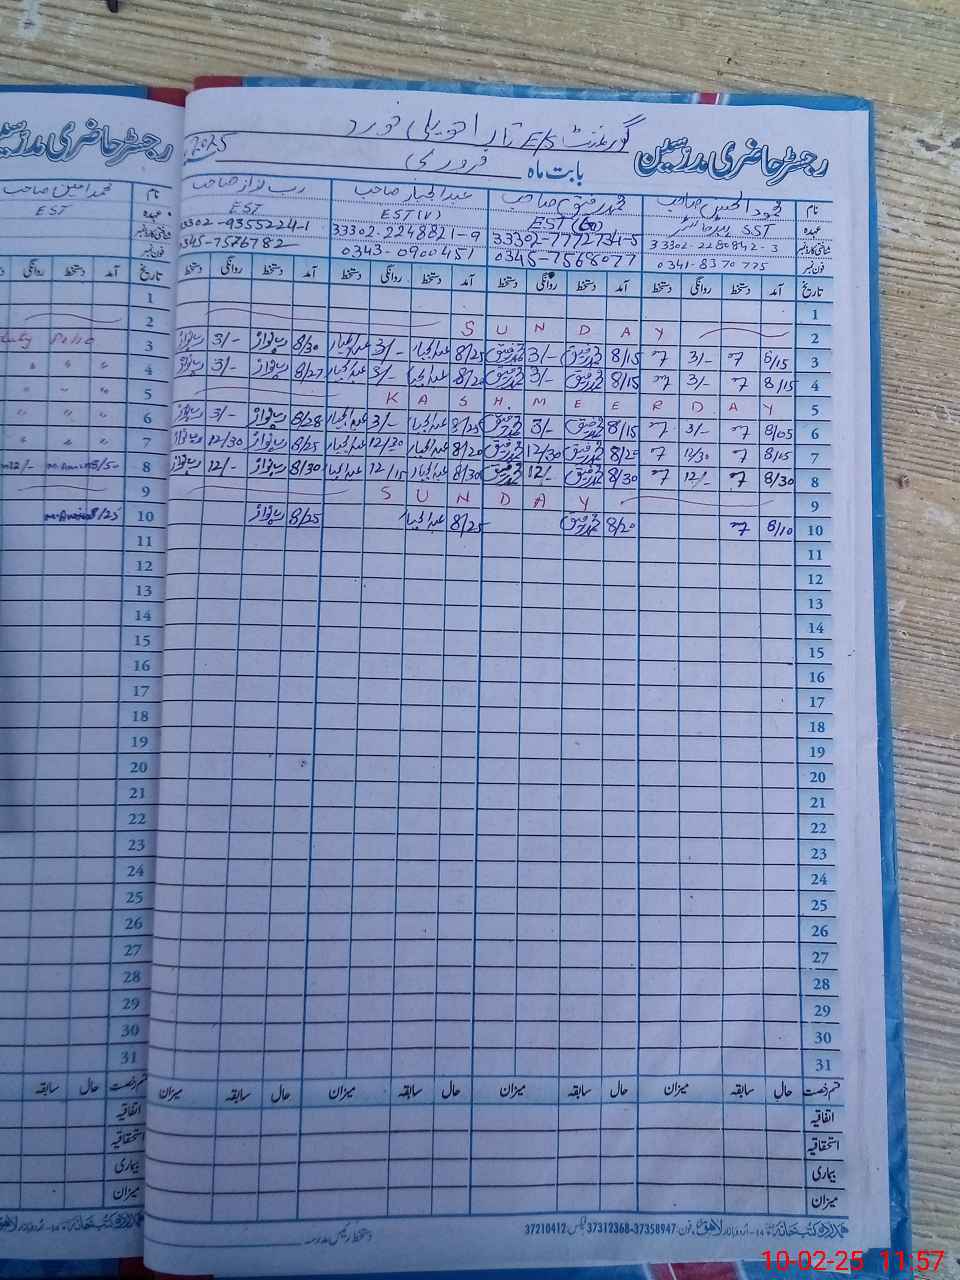 رجسٹر حاضری مدرسین گورنمنٹ E/S
بابت ماہ فروری 2025
نام محمود الحسن صاحب محمد رفیق صاحب عبدالجبار صاحب رب نواز صاحب
عہدہ SST EST EST(V) EST
شناختی کارڈ نمبر 33302-2280842-3 33302-7772734-5 33302-2248821-9 33302-9355224-1
فون نمبر 0341-8370775 0345-7568077 0343-0900451 0345-7576782
تاریخ آمد دستخط روانگی دستخط آمد دستخط روانگی دستخط آمد دستخط روانگی دستخط آمد دستخط روانگی دستخط
1
2 SUNDAY
3 8/15 3/- 8/15 محمد رفیق 3/- محمد رفیق 8/25 عبدالجبار 3/- عبدالجبار 8/30 رب نواز 3/- رب نواز
4 8/15 3/- 8/15 محمد رفیق 3/- محمد رفیق 8/20 عبدالجبار 3/- عبدالجبار 8/27 رب نواز 3/- رب نواز
5 KASHMEER DAY
6 8/05 3/- 8/15 محمد رفیق 3/- محمد رفیق 8/25 عبدالجبار 3/- عبدالجبار 8/28 رب نواز 3/- رب نواز
7 8/15 12/30 8/20 محمد رفیق 12/30 محمد رفیق 8/20 عبدالجبار 12/30 عبدالجبار 8/25 رب نواز 12/30 رب نواز
8 8/30 12/- 8/30 محمد رفیق 12/- محمد رفیق 8/30 عبدالجبار 12/15 عبدالجبار 8/30 رب نواز 12/- رب نواز
9 SUNDAY
10 8/10 8/20 محمد رفیق 8/25 عبدالجبار 8/25 رب نواز
11
12
13
14
15
16
17
18
19
20
21
22
23
24
25
26
27
28
29
30
31
قسم رخصت حال سابقہ میزان حال سابقہ میزان حال سابقہ میزان حال سابقہ میزان
اتفاقیہ
استحقاقیہ
بیماری
میزان
دستخط رئیس مدرسہ
فون: 37312368-37358947 فیکس: 37210412
رجسٹر حاضری مدرسین
محمد امین صاحب
EST
نام
عہدہ
شناختی کارڈ نمبر
فون نمبر
تاریخ آمد دستخط روانگی
1
2
3 Duty Polio
4
5
6
7
8
9
10 8/25
11
12
13
14
15
16
17
18
19
20
21
22
23
24
25
26
27
28
29
30
31
قسم رخصت حال سابقہ
اتفاقیہ
استحقاقیہ
بیماری
میزان
10-02-25 11:57